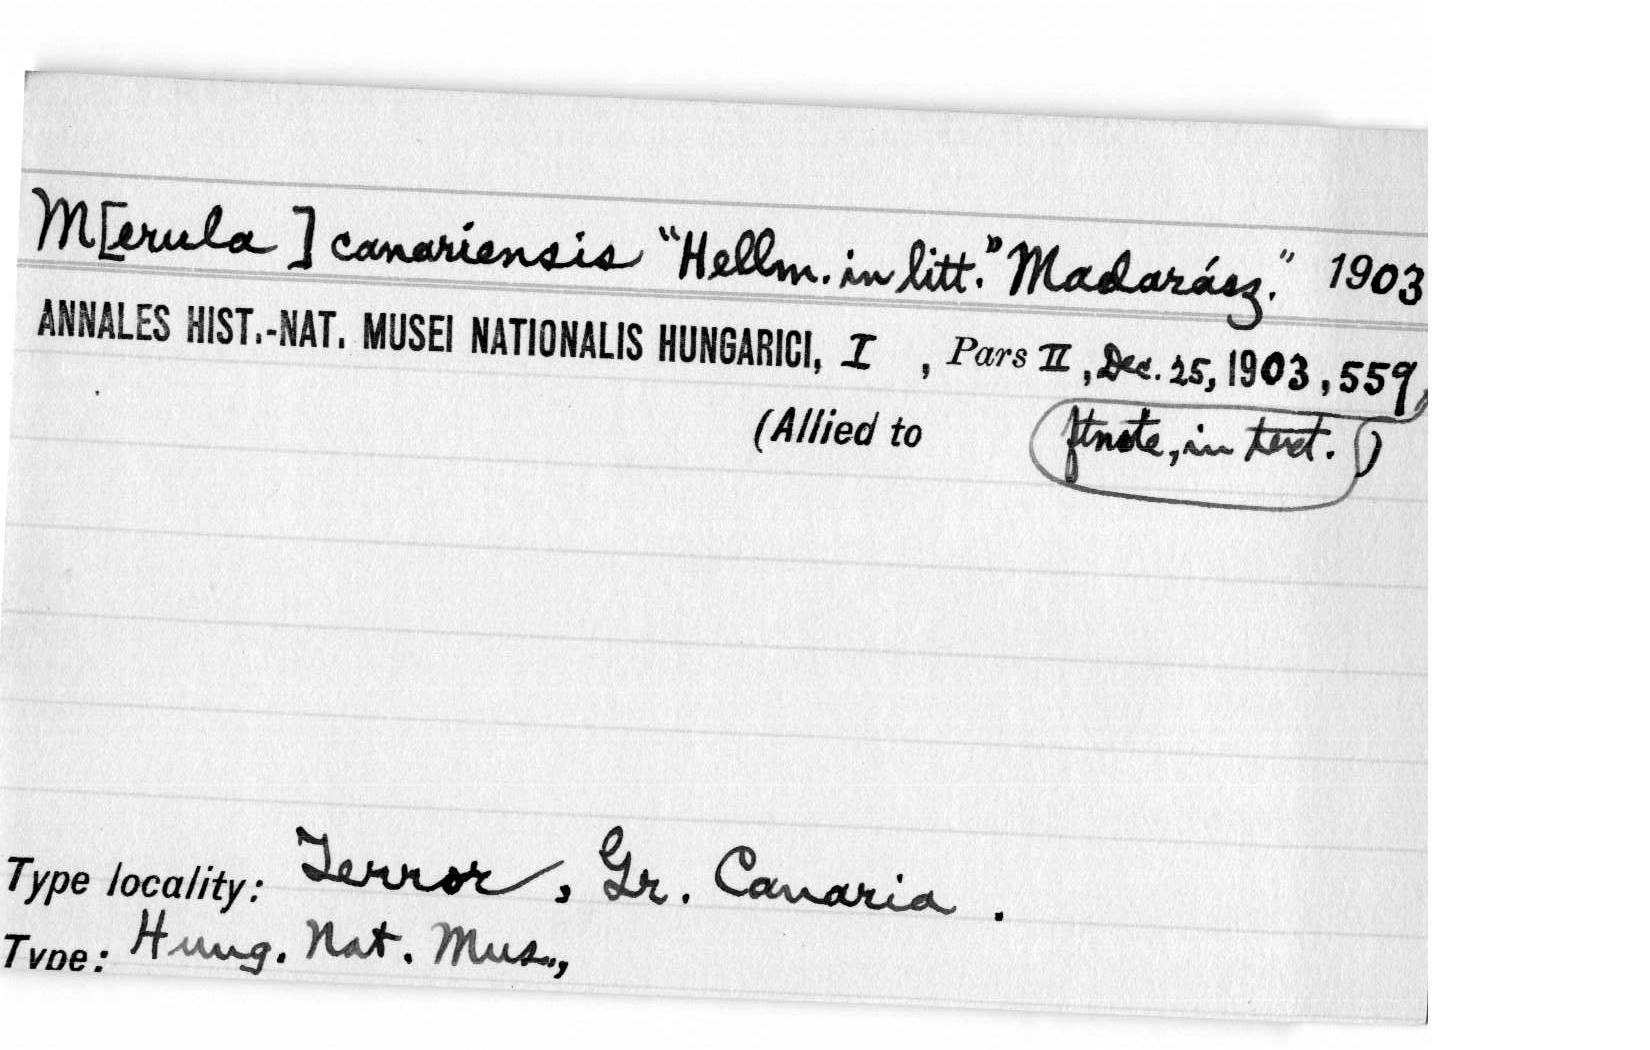 M[erula] canariensis "Hellm. in litt." Madarász." 1903
ANNALES HIST.-NAT. MUSEI NATIONALIS HUNGARICI, I , Pars II, Dec. 25, 1903, 559,
(Allied to ftnote, in text. )
Type locality: Terror, Gr. Canaria.
Type: Hung. Nat. Mus.,